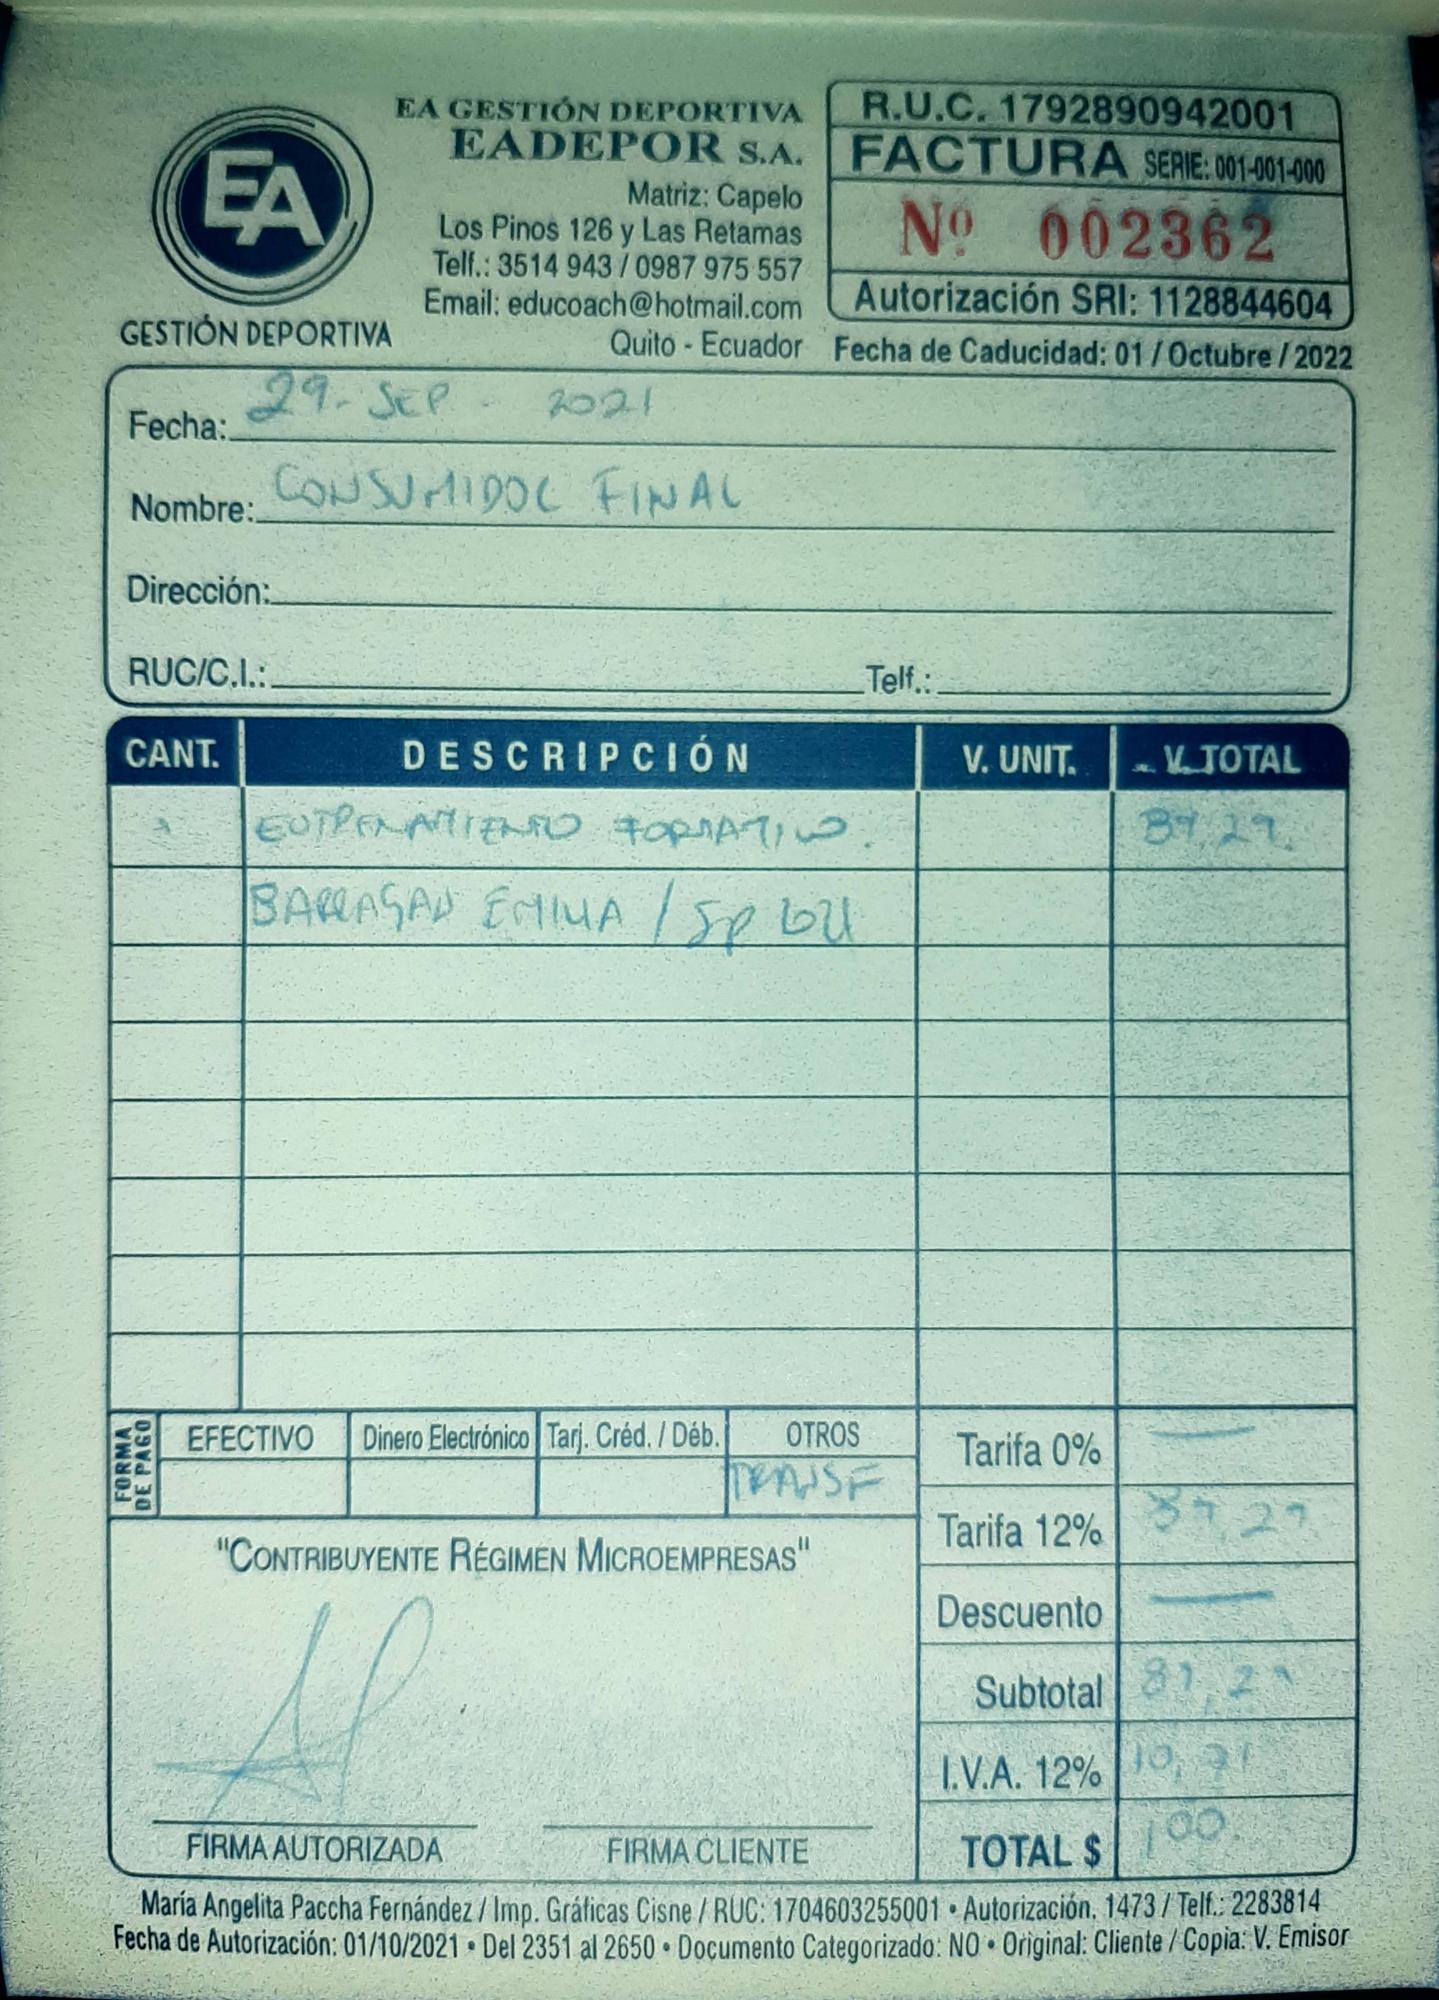 EA
GESTIÓN DEPORTIVA
EA GESTIÓN DEPORTIVA
EADEPOR S.A.
Matriz: Capelo
Los Pinos 126 y Las Retamas
Telf.: 3514 943 / 0987 975 557
Email: educoach@hotmail.com
Quito - Ecuador
R.U.C. 1792890942001
FACTURA SERIE: 001-001-000
Nº 002362
Autorización SRI: 1128844604
Fecha de Caducidad: 01 / Octubre / 2022
Fecha: 29-SEP-2021
Nombre: CONSUMIDOR FINAL
Dirección:
RUC/C.I.: Telf.:
CANT. DESCRIPCIÓN V. UNIT. V. TOTAL
ENTRENAMIENTO FORMATIVO. 89,29.
BARRAGAN EMILIA / SP
FORMA DE PAGO
EFECTIVO Dinero Electrónico Tarj. Créd. / Déb. OTROS
TRANSF
Tarifa 0% —
Tarifa 12% 89,29
Descuento —
Subtotal 89,29
I.V.A. 12% 10,71
TOTAL $ 100.
"CONTRIBUYENTE RÉGIMEN MICROEMPRESAS"
FIRMA AUTORIZADA FIRMA CLIENTE
María Angelita Paccha Fernández / Imp. Gráficas Cisne / RUC: 1704603255001 • Autorización. 1473 / Telf.: 2283814
Fecha de Autorización: 01/10/2021 • Del 2351 al 2650 • Documento Categorizado: NO • Original: Cliente / Copia: V. Emisor